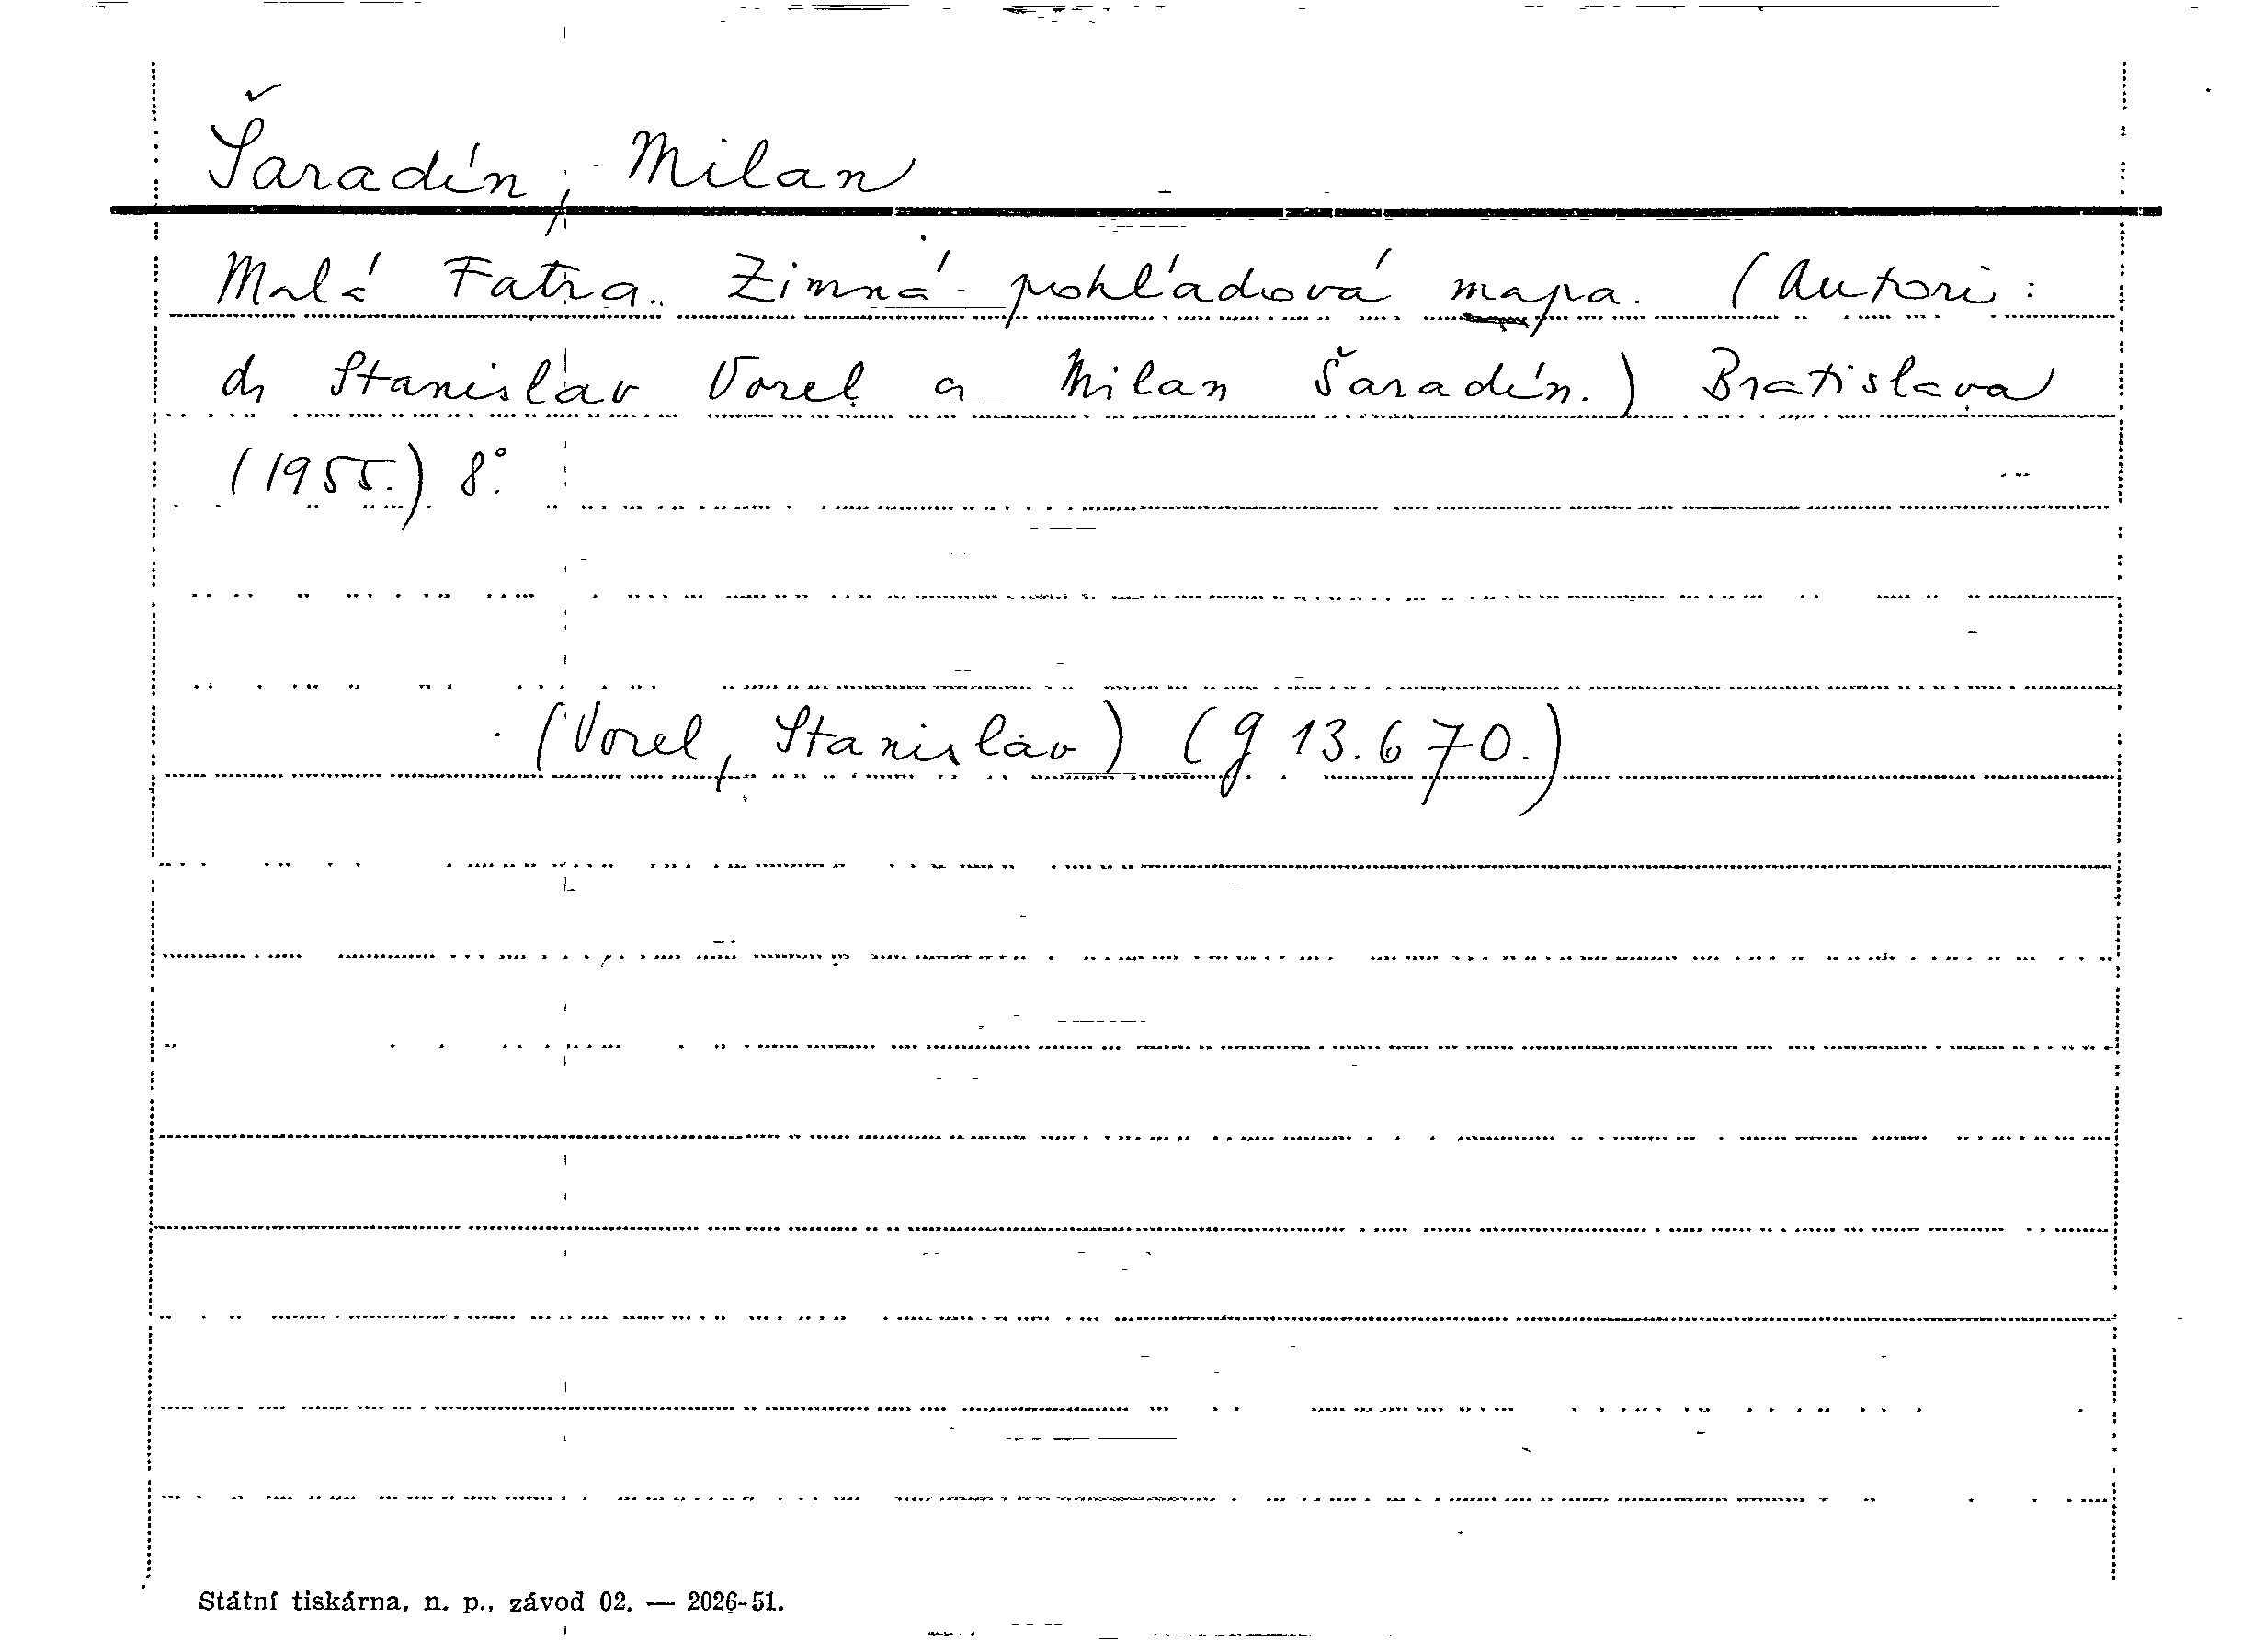 Šaradín, Milan
Malá Fatra. Zimná pohľadová mapa. (Autori:
dr Stanislav Vorel a Milan Šaradín.) Bratislava
(1955.) 8°.
(Vorel, Stanislav) (g 13.670.)
Státní tiskárna, n. p., závod 02. — 2026-51.